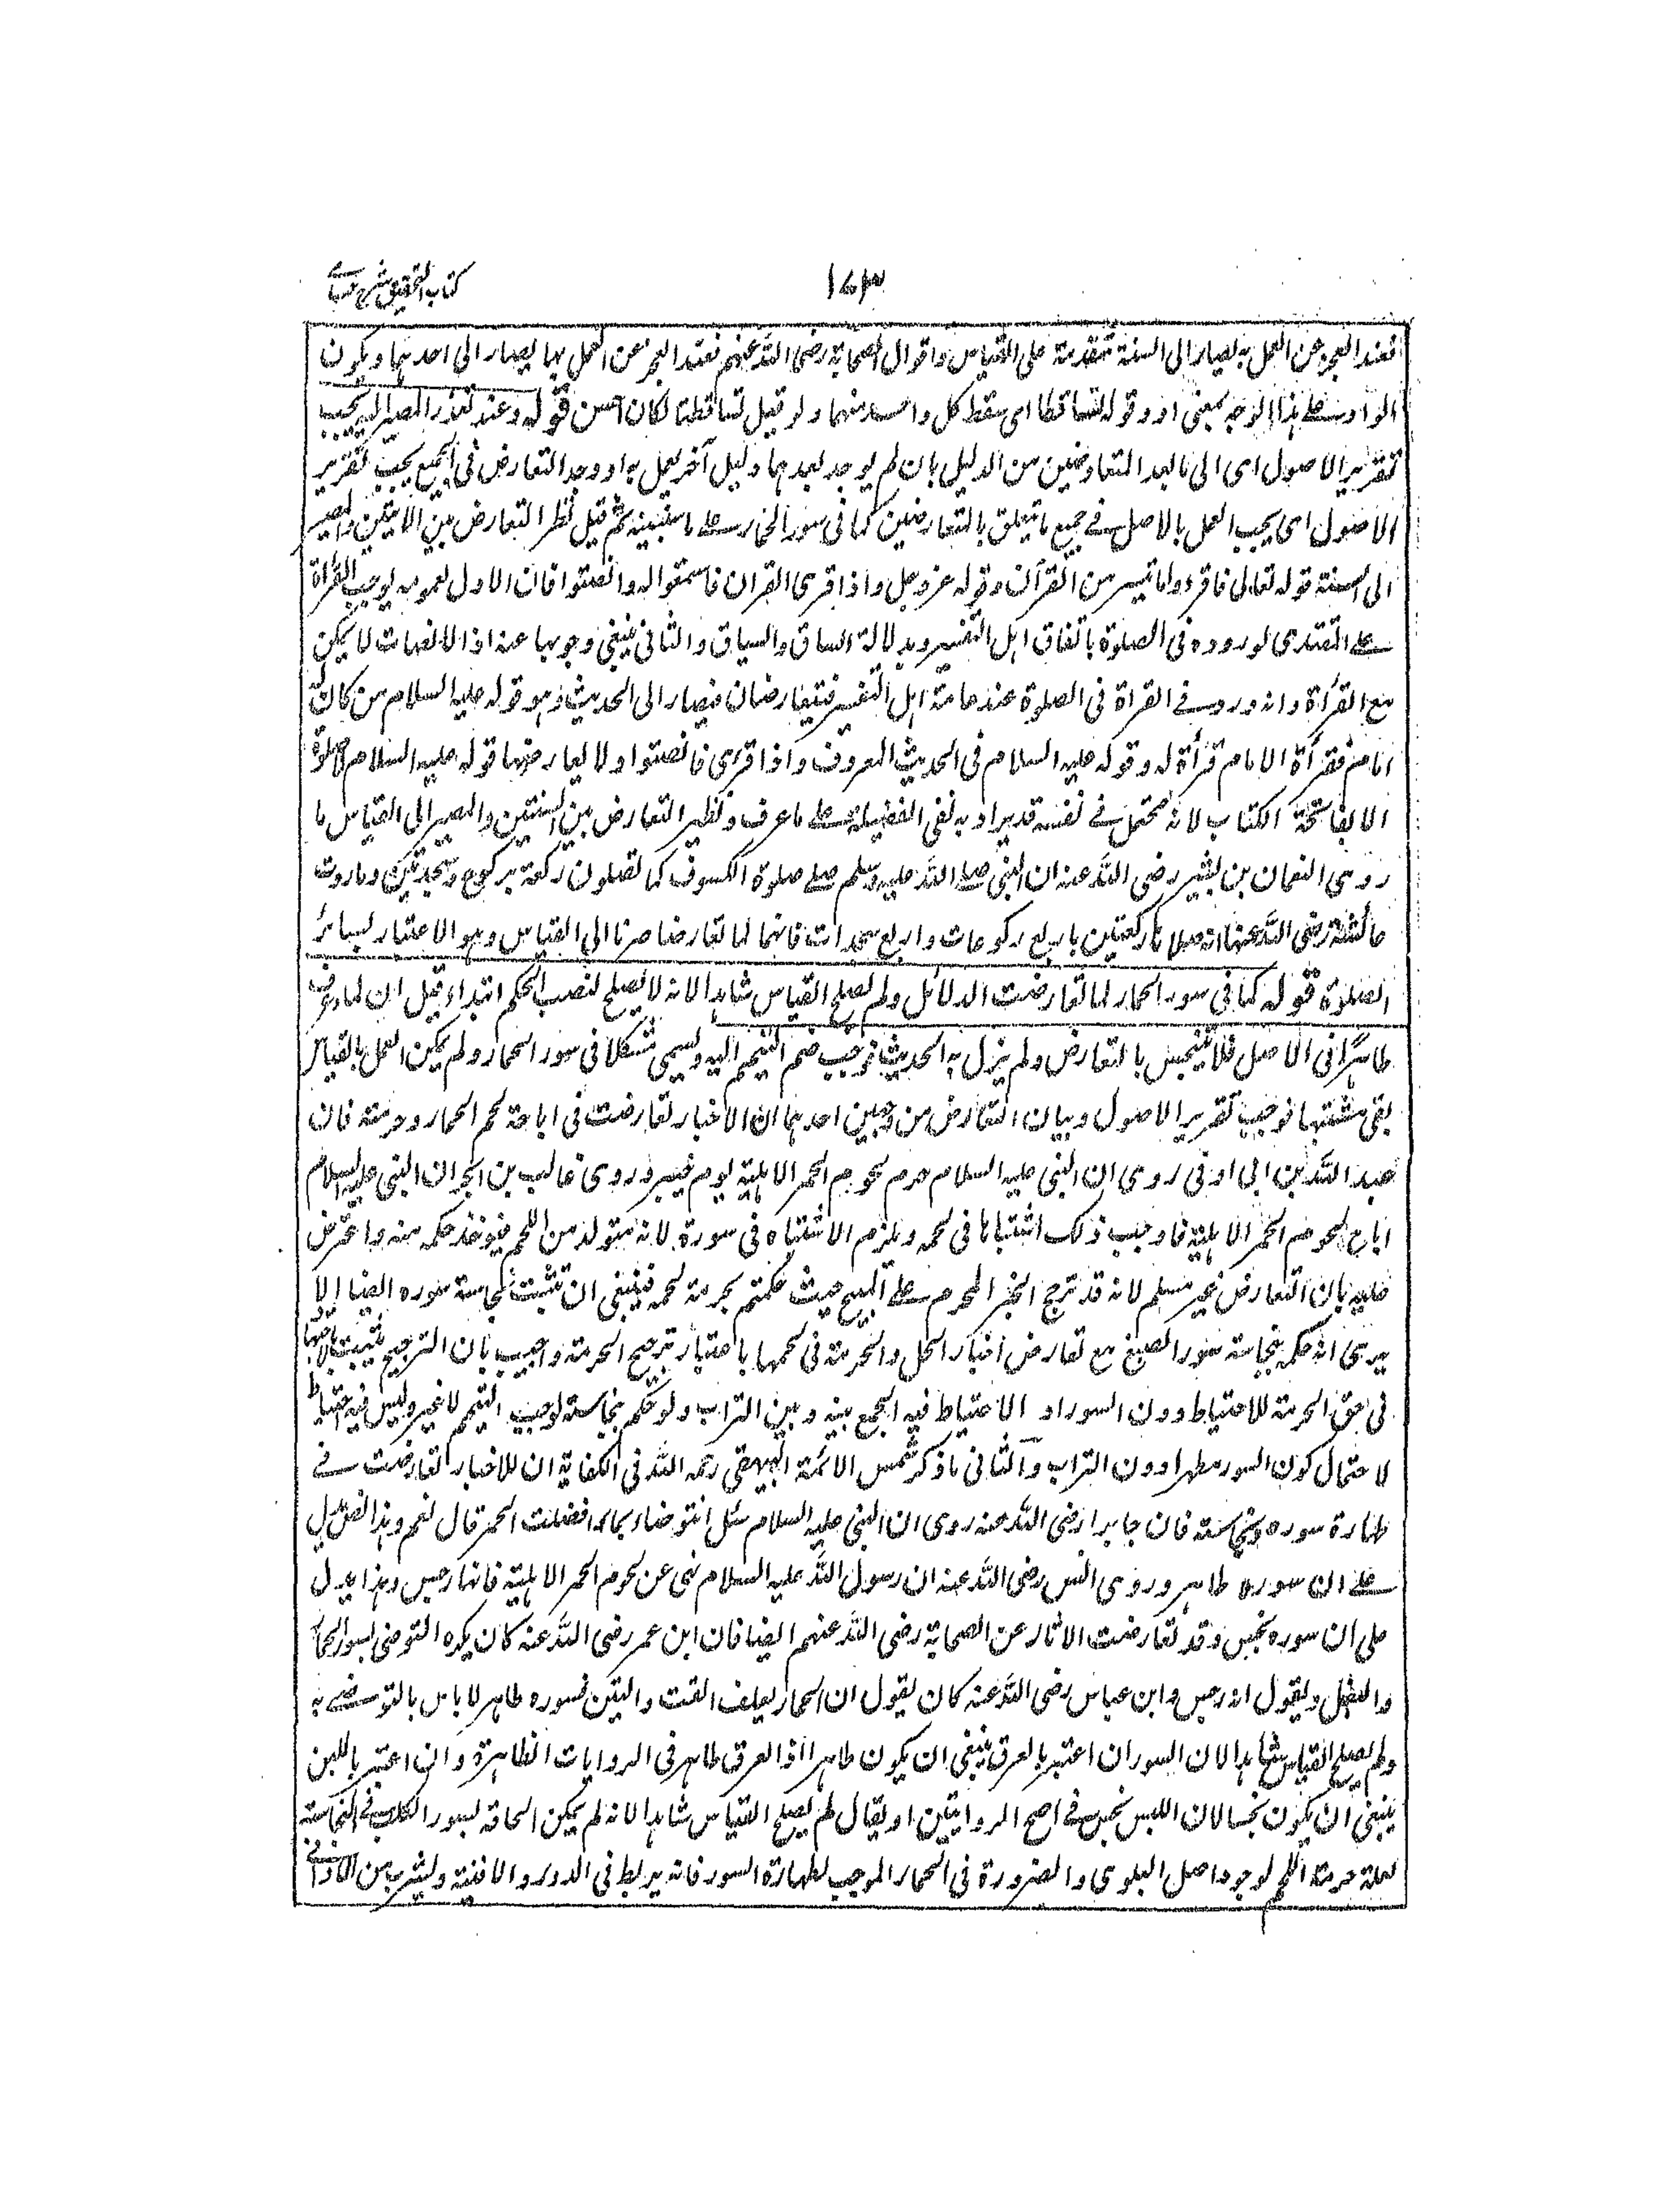 كتاب التحقيق شرح حسامي
١٧٣
فعند العجز عن العمل به يصار الى السنة متقدمة على القياس واقوال الصحابة رضى الله عنهم فعند العجز عن العمل بها يصار الى احدهما ويكون
الواو على هذا الوجه بمعنى او وقوله تساقطا اى سقط كل واحد منهما ولو قيل تساقطتا لكان احسن قوله وعند تعذر المصير اليه يجب
تقرير الاصول اى الى ما بعد المتعارضين من الدليل بان لم يوجد بعدهما دليل آخر يعمل به او وجد التعارض فى الجميع يجب تقرير
الاصول اى يجب العمل بالاصل فى جميع ما يتعلق بالمتعارضين كما فى سور الحمار على ما سنبينه ثم قيل نظر التعارض بين الايتين والمصير
الى السنة قوله تعالى فاقرءوا ما تيسر من القرآن وقوله عز وجل واذا قرى القران فاستمعوا له وانصتوا فان الاول بعمومه يوجب القراة
على المقتدى لوروده فى الصلوة باتفاق اهل التفسير وبدلالة السباق والسياق والثانى ينفى وجوبها عنه اذ الانصات لا يمكن
مع القرأة وانه ورد فى القراة فى الصلوة عند عامة اهل التفسير فتيعارضان فيصار الى الحديث وهو قوله عليه السلام من كان له
امام فقرأة الامام قرأة له وقوله عليه السلام فى الحديث المعروف واذا قرى فانصتوا ولا يعارضها قوله عليه السلام لا صلوة
الا بفاتحة الكتاب لانه محتمل فى نفسه قد يراد به نفى الفضيلة على ما عرف ونظير التعارض بين السنتين والمصير الى القياس ما
روى النعمان بن بشير رضى الله عنه ان النبى صلى الله عليه وسلم صلى صلوة الكسوف كما تصلون ركعة بركوع وسجدتين وما روت
عائشة رضى الله عنها انه صلاها ركعتين باربع ركوعات واربع سجدات فانهما لما تعارضا صرنا الى القياس وهو الاعتبار بسائر
الصلوة قوله كما فى سور الحمار لما تعارضت الدلائل ولم يصلح القياس شاهدا لانه لا يصلح لنصب الحكم ابتداء قيل ان الماء عرف
طاهرا فى الاصل فلا يتنجس بالتعارض ولم يزل به الحديث فوجب ضم التيمم اليه ويسمى مشكلا فى سور الحمار ولم يمكن العمل بالقياس
بقى مشتبها فوجب تقرير الاصول وبيان التعارض من وجهين احدهما ان الاخبار تعارضت فى اباحة لحم الحمار وحرمته فان
عبد الله بن ابى اوفى روى ان النبى عليه السلام حرم لحوم الحمر الاهلية يوم خيبر وروى غالب بن ابجر ان النبى عليه السلام
اباح لحوم الحمر الاهلية فاوجب ذلك اشتباها فى لحمه ويلزم الاشتباه فى سوره لانه متولد من اللحم فيوخذ حكمه منه واعترض
عليه بان التعارض غير مسلم لانه قد ترجح الخبر المحرم على المبيح حيث حكمتم بحرمة لحمه فينبغى ان تثبت نجاسة سوره ايضا الا
يرى انه حكم بنجاسة سور الضبع مع تعارض اخبار الحل والحرمة فى لحمها باعتبار ترجيح الحرمة واجيب بان الترجيح يثبت بالاجتهاد
فى حق الحرمة للاحتياط دون السور اذ الاحتياط فيه الجمع بينه وبين التراب ولو حكم بنجاسته لوجب التيمم لا غير وليس فيه احتياط
لاحتمال كون السور مطهرا دون التراب والثانى ما ذكر شمس الائمة البيهقى رحمه الله فى الكفاية ان الاخبار تعارضت فى
طهارة سوره ونجاسته فان جابرا رضى الله عنه روى ان النبى عليه السلام سئل انتوضاء بماء افضلت الحمر قال نعم وهذا الفضل يدل
على ان سوره طاهر وروى انس رضى الله عنه ان رسول الله عليه السلام نهى عن لحوم الحمر الاهلية فانها رجس وهذا يدل
على ان سوره نجس وقد تعارضت الاثار عن الصحابة رضى الله عنهم ايضا فان ابن عمر رضى الله عنه كان يكره التوضى بسور الحمار
والبغل ويقول انه رجس وابن عباس رضى الله عنه كان يقول ان الحمار يعلف القت والتبن فسوره طاهر لا باس بالتوضى به
ولم يصلح القياس شاهدا لان السور ان اعتبر بالعرق ينبغى ان يكون طاهرا اذ العرق طاهر فى الروايات الظاهرة وان اعتبر باللبن
ينبغى ان يكون نجسا لان اللبن نجس فى اصح الروايتين او يقال لم يصلح القياس شاهدا لانه لم يمكن الحاقه بسور الكلب فى النجاسة
لعلة حرمة اللحم لوجود اصل البلوى والضرورة فى الحمار الموجب لطهارة السور فانه يربط فى الدور والافنية ويشرب من الاوانى